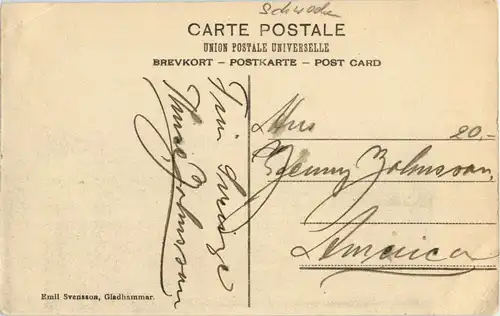 Schweden
CARTE POSTALE
UNION POSTALE UNIVERSELLE
BREVKORT – POSTKARTE – POST CARD
Thure Johnsson
Mrs
20,-
Jenny Johnsson,
America
Emil Svensson, Gladhammar.